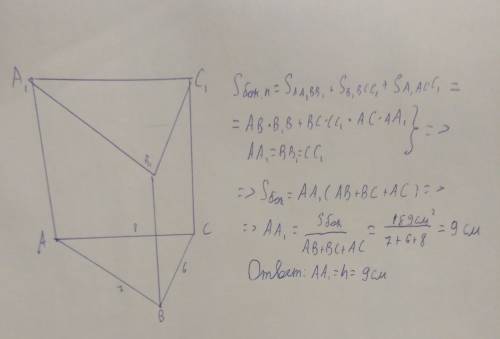 A₁ C₁
B₁
A 8 C
7 6
B
Sбок.п = SAA₁BB₁ + SB₁BCC₁ + SA₁ACC₁ =
= AB · B₁B + BC · CC₁ · AC · AA₁ } =>
AA₁ = BB₁ = CC₁
=> Sбок = AA₁ (AB + BC + AC) =>
=> AA₁ = Sбок / AB + BC + AC = 189 см² / 7 + 6 + 8 = 9 см
Ответ: AA₁ = h = 9 см